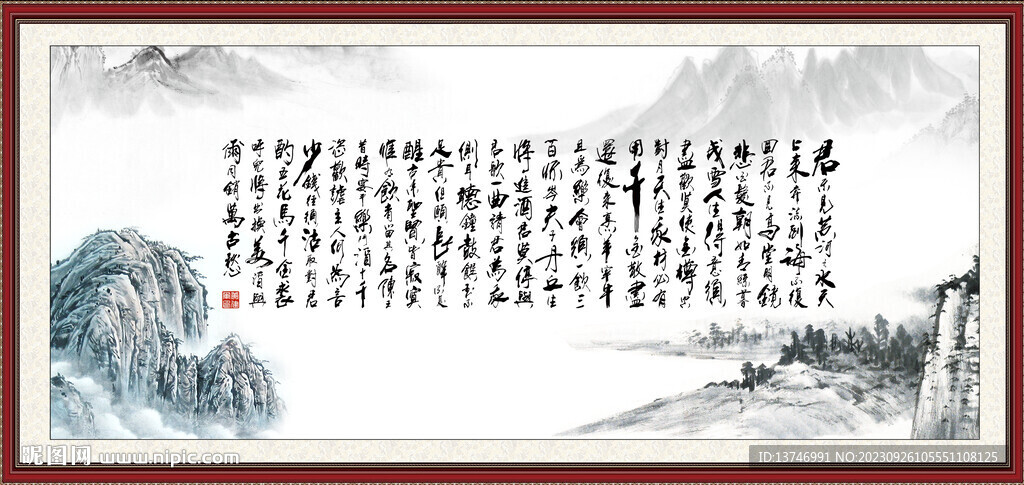 君不見黃河之水天
上来奔流到海不復
回君不見高堂明鏡
悲白髮朝如青絲暮
成雪人生得意須
盡歡莫使金樽空
對月天生我材必有
用千金散盡
還復來烹羊宰牛
且為樂會須一飲三
百杯岑夫子丹丘生
將進酒君莫停與
君歌一曲請君為我
側耳聽鐘鼓饌玉不
足貴但願長醉不復
醒古來聖賢皆寂寞
惟有飲者留其名陳王
昔時宴平樂斗酒十千
恣歡謔主人何為言
少錢徑須沽取對君
酌五花馬千金裘
呼兒將出換美酒與
爾同銷萬古愁
昵图网 www.nipic.com
ID:13746991 NO:20230926105551108125